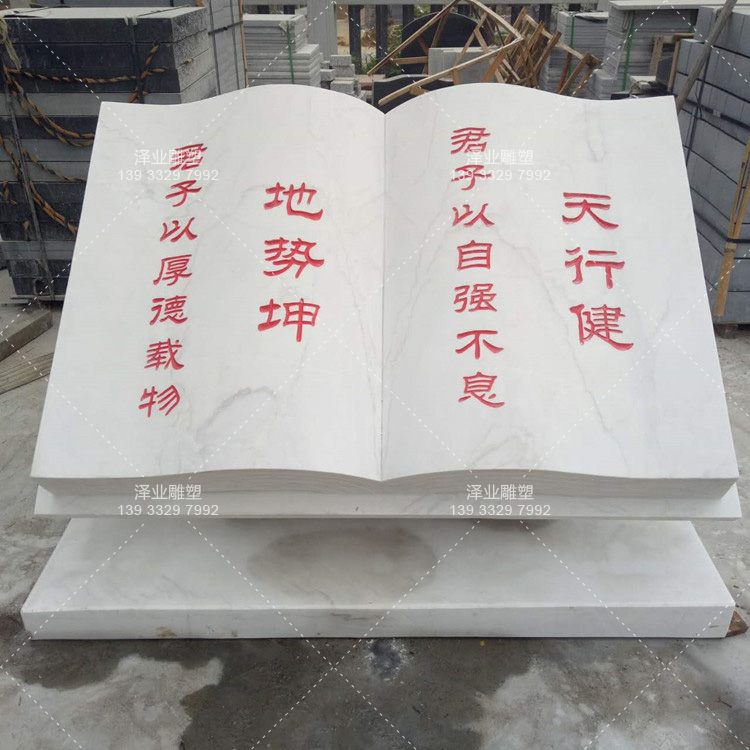 天行健
君子以自强不息
地势坤
君子以厚德载物
泽业雕塑
139 3329 7992
泽业雕塑
139 3329 7992
泽业雕塑
139 3329 7992
泽业雕塑
139 3329 7992